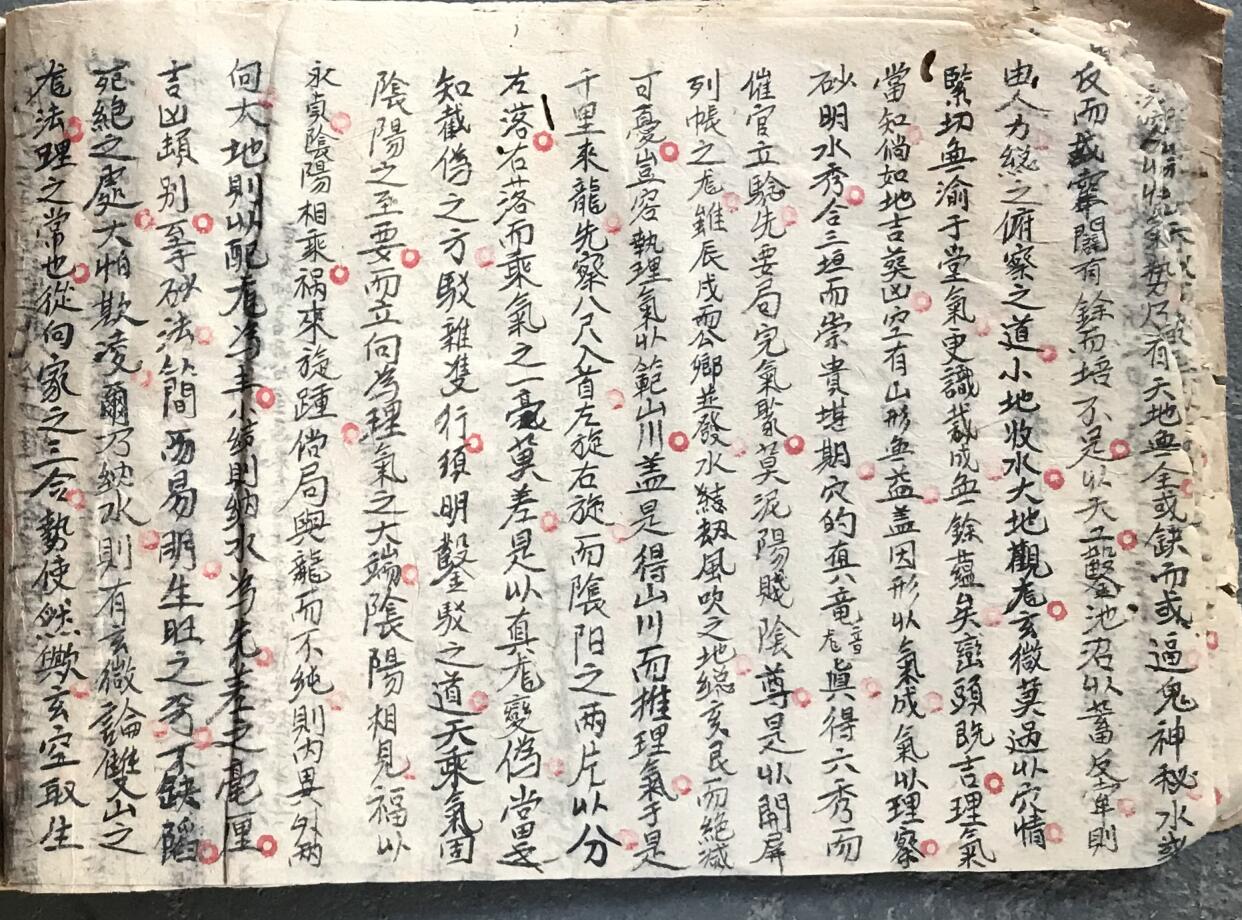 勢乃有天地無全或缺而或逼鬼神秘水或
反而或窜關有餘而培不足以天工鑿池沼以蓄反窜則
由人力総之俯察之道小地收水大地觀尨玄微莫過以穴情
緊切無渝于堂氣更識裁成無餘蘊矣巒頭既吉理氣
當知倘如地吉葵凶空有山形無益盖因形以氣成氣以理察
砂明水秀合三垣而崇貴堪期穴的直八竜尨音眞得六秀而
催官立騐先要局完氣聚莫泥陽賤陰尊是以開屏
列帳之尨雖辰戌而公鄉並發水結刼風吹之地縂亥艮而絶滅
可憂豈容執理氣以範山川盖是得山川而推理氣于是
千里來龍先察八尺入首左旋右旋而陰阳之兩片以分
左落右落而乘氣之一毫莫差是以真尨變偽當思
知截偽之方駁雜隻行須明鑿駁之道天乘氣固
陰陽之至要而立向為理氣之大端陰陽相見福以
永貞陰陽相乘祸來旋踵倘局與龍而不純則內異外兩
向大地則以配尨為主小績則納水為先差之毫厘
吉凶頓别至于砂法簡而易明生旺之旁不缺陷
死絶之處大怕欺凌爾乃納水則有玄微論雙山之
尨法理之常也從向家之三合勢使然歟玄空取生